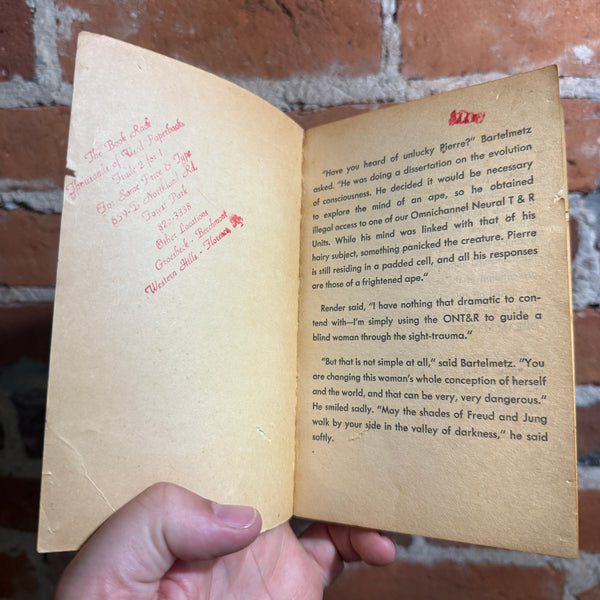 The Book Rack
Thousands of Used Paperbacks
Trade 2 for 1
For Same Price & Type
Forest Park
Other Locations
Groesbeck - Beechmont
Western Hills - Florence Ky
"Have you heard of unlucky Pierre?" Bartelmetz
asked. "He was doing a dissertation on the evolution
of consciousness. He decided it would be necessary
to explore the mind of an ape, so he obtained
illegal access to one of our Omnichannel Neural T & R
Units. While his mind was linked with that of his
hairy subject, something panicked the creature. Pierre
is still residing in a padded cell, and all his responses
are those of a frightened ape."
Render said, "I have nothing that dramatic to con-
tend with—I'm simply using the ONT&R to guide a
blind woman through the sight-trauma."
"But that is not simple at all," said Bartelmetz. "You
are changing this woman's whole conception of herself
and the world, and that can be very, very dangerous."
He smiled sadly. "May the shades of Freud and Jung
walk by your side in the valley of darkness," he said
softly.